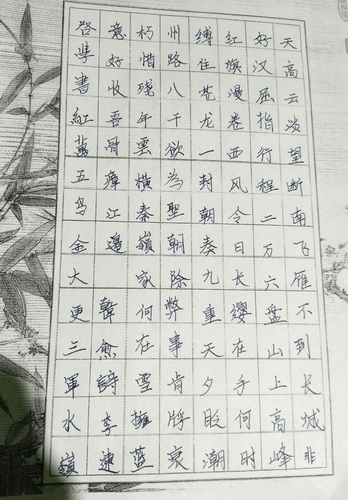 天高云淡望断南飞雁不到长城非
好汉屈指行程二万六盘山上高峰
红旗漫卷西风今日长缨在手何时
缚住苍龙一封朝奏九重天夕贬潮
州路八千欲為聖朝除弊事肯将衰
朽惜残年雲横秦嶺家何在雪擁蓝
意好收吾骨瘴江邊 韓愈詩李速
啓書紅萬五鸟金大更三軍水嶺